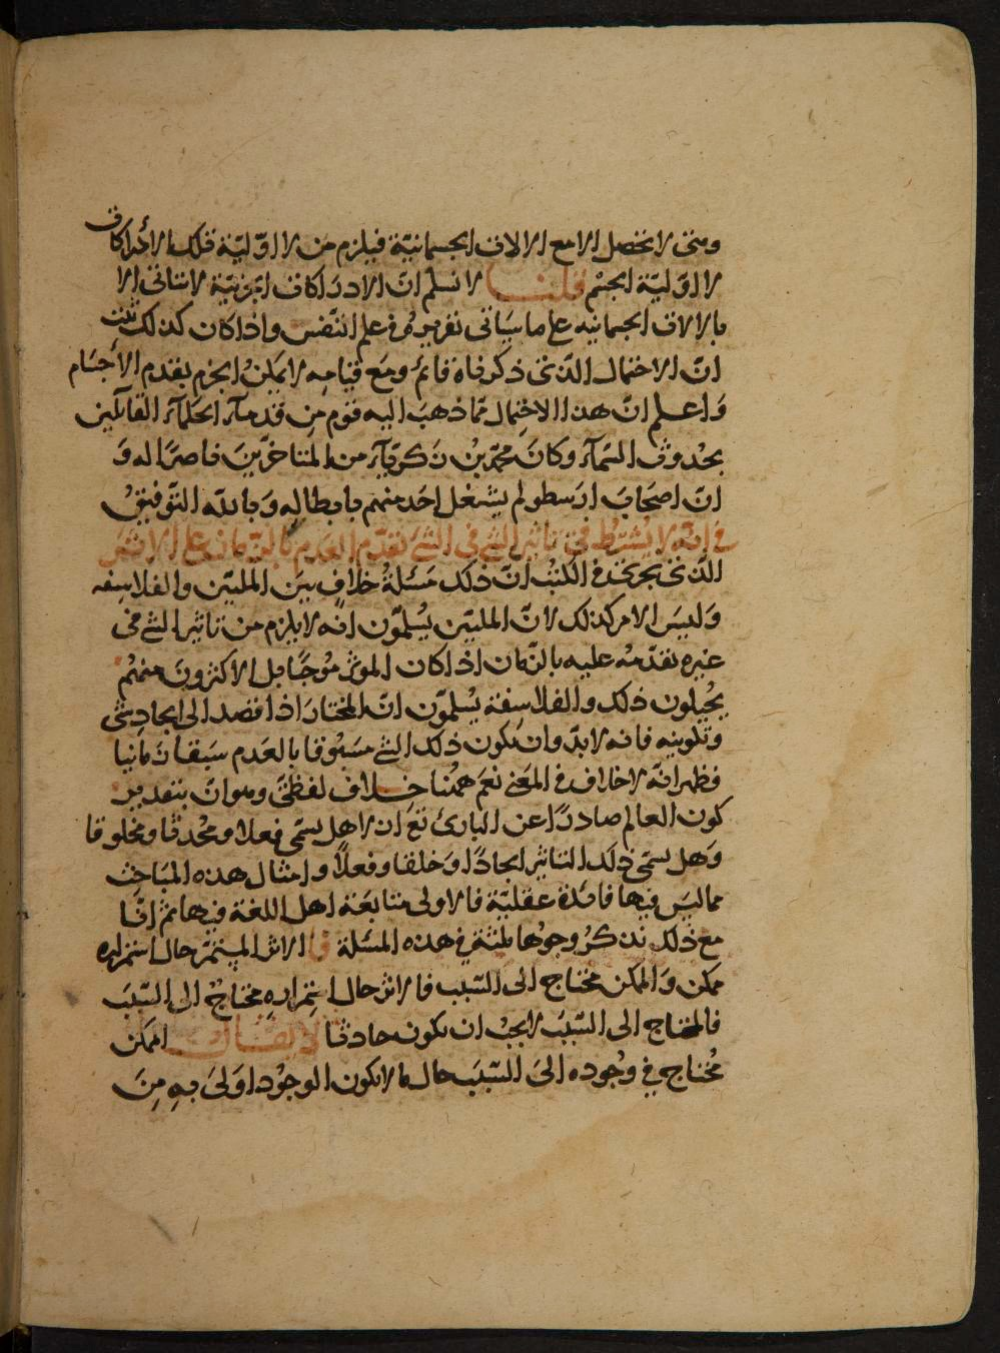 وهي لا تحصل الا مع الالات الجسمانية فيلزم من لا اوّليّة تلك الادراكات
لا اوّليّة الجسم قلنا لا نسلم انّ الادراكات الجزئيّة لا تتاتى الا
بالالات الجسمانيه على ما سياتى تقريره فى علم النّفس واذا كان كذلك ثبت
انّ الاحتمال الذى ذكرناه قائم ومع قيامه لا يمكن الجزم بقدم الاجسام
واعلم انّ هذا الاحتمال ممّا ذهب اليه قوم من قدمآء الحكمآء القائلين
بحدوث السّمآء وكان محمّد بن زكريّآء من المتاخّرين ناصرًا له و
انّ اصحاب ارسطو لم يشتغل احد منهم بابطاله وبالله التّوفيق
فى انّه لا يشترط فى تاثير الشئ فى الشئ تقدّم العدم بالزمان على الاثر
الذى يجرى فى الكتب انّ ذلك مسئلة خلاف بين المليّين والفلاسفه
وليس الامر كذلك لانّ المليّين يسلّمون انّه لا يلزم من تاثير الشئ فى
غيره تقدّمه عليه بالزّمان اذا كان الموثر موجبًا بل الاكثرون منهم
يحيلون ذلك والفلاسفة يسلّمون انّ المختار اذا قصد الى ايجاد شئ
وتكوينه فانه لا بدّ وان يكون ذلك الشئ مسبوقا بالعدم سبقا زمانيا
فظهر انّه لا خلاف فى المعنى نعم ههنا خلاف لفظىّ وهو انّ بتقدير
كون العالم صادرًا عن البارئ تع ازلا هل يسمّى فعلا ومحدثا ومخلوقا
وهل يسمّى ذلك التاثير ايجادًا وخلقا وفعلًا وامثال هذه المباحث
مما ليس فيها فائدة عقليّة فالاولى متابعة اهل اللغة فيها ثم انّا
مع ذلك نذكر وجوها ثلثة فى هذه المسئلة الاثر المستمّر حال استمراره
ممكن والممكن محتاج الى السّبب فالاثر حال استمراره محتاج الى السّبب
فالمحتاج الى السّبب لا يجب ان يكون حادثا لا يقال الممكن
محتاج فى وجوده الى السّبب حال ما لا يكون الوجود اولى به من